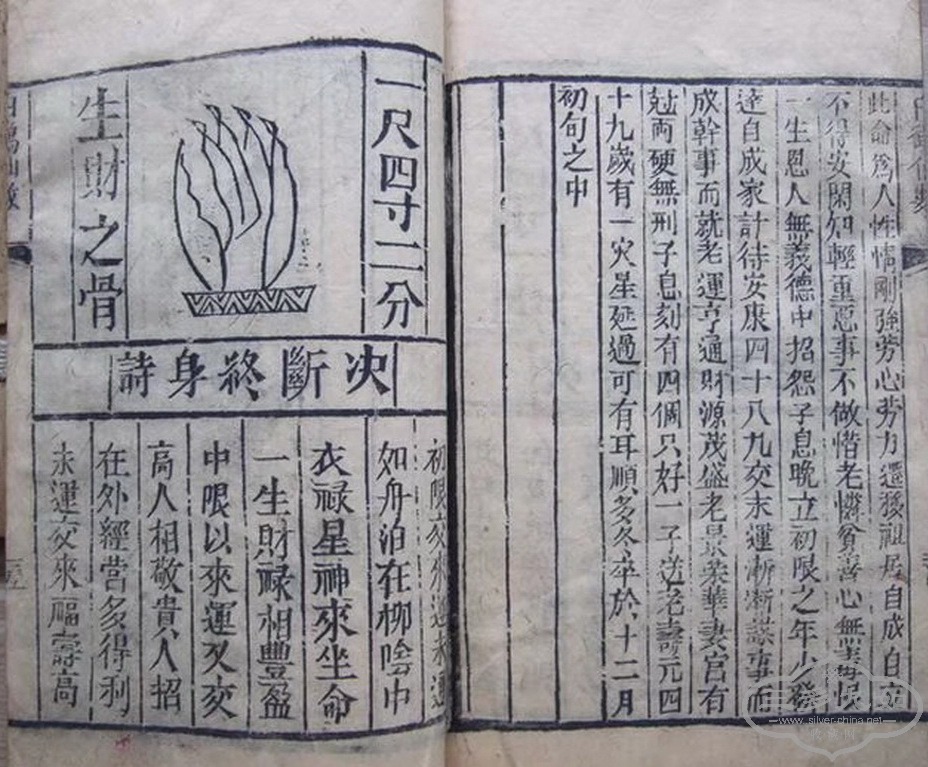 此命爲人性情剛強劳心劳力遷移祖居自成自立
不得安閑知輕重惡事不做惜老憐貧善心無毒恨
一生恩人無義德中招怨子息晚立初限之年少發
達自成家計待安康四十八九交末運漸漸謀事而
成幹事而就老運亨通財源茂盛老景荣華妻宮有
尅両硬無刑子息刻有四個只好一子送老壽元四
十九歲有一灾星延過可有耳順多冬卒於十二月
初句之中
一尺四寸二分
生財之骨
决斷終身詩
初限交來運未通
如舟泊在柳陰中
衣禄星神來坐命
一生財禄相豐盈
中限以來運又交
高人相敬貴人招
在外經营多得利
末運交來福壽高
www.silver-china.net